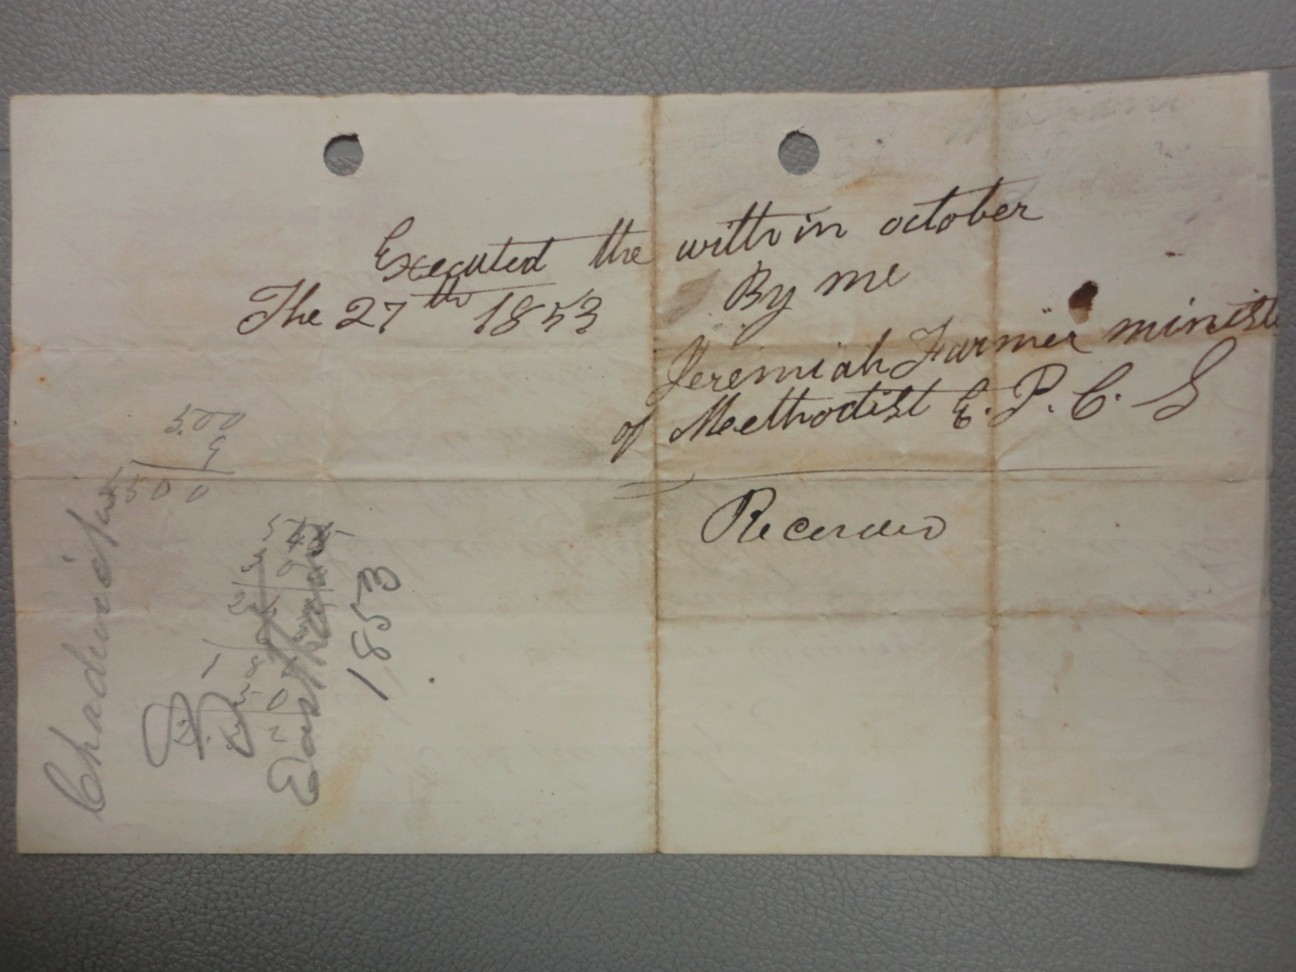 Executed the within october
The 27th 1853 By me
Jeremiah Farmer ministe
of Meethodist E. P. C. S
Recorded
500
9
500
Chadwick
Eastham
1853